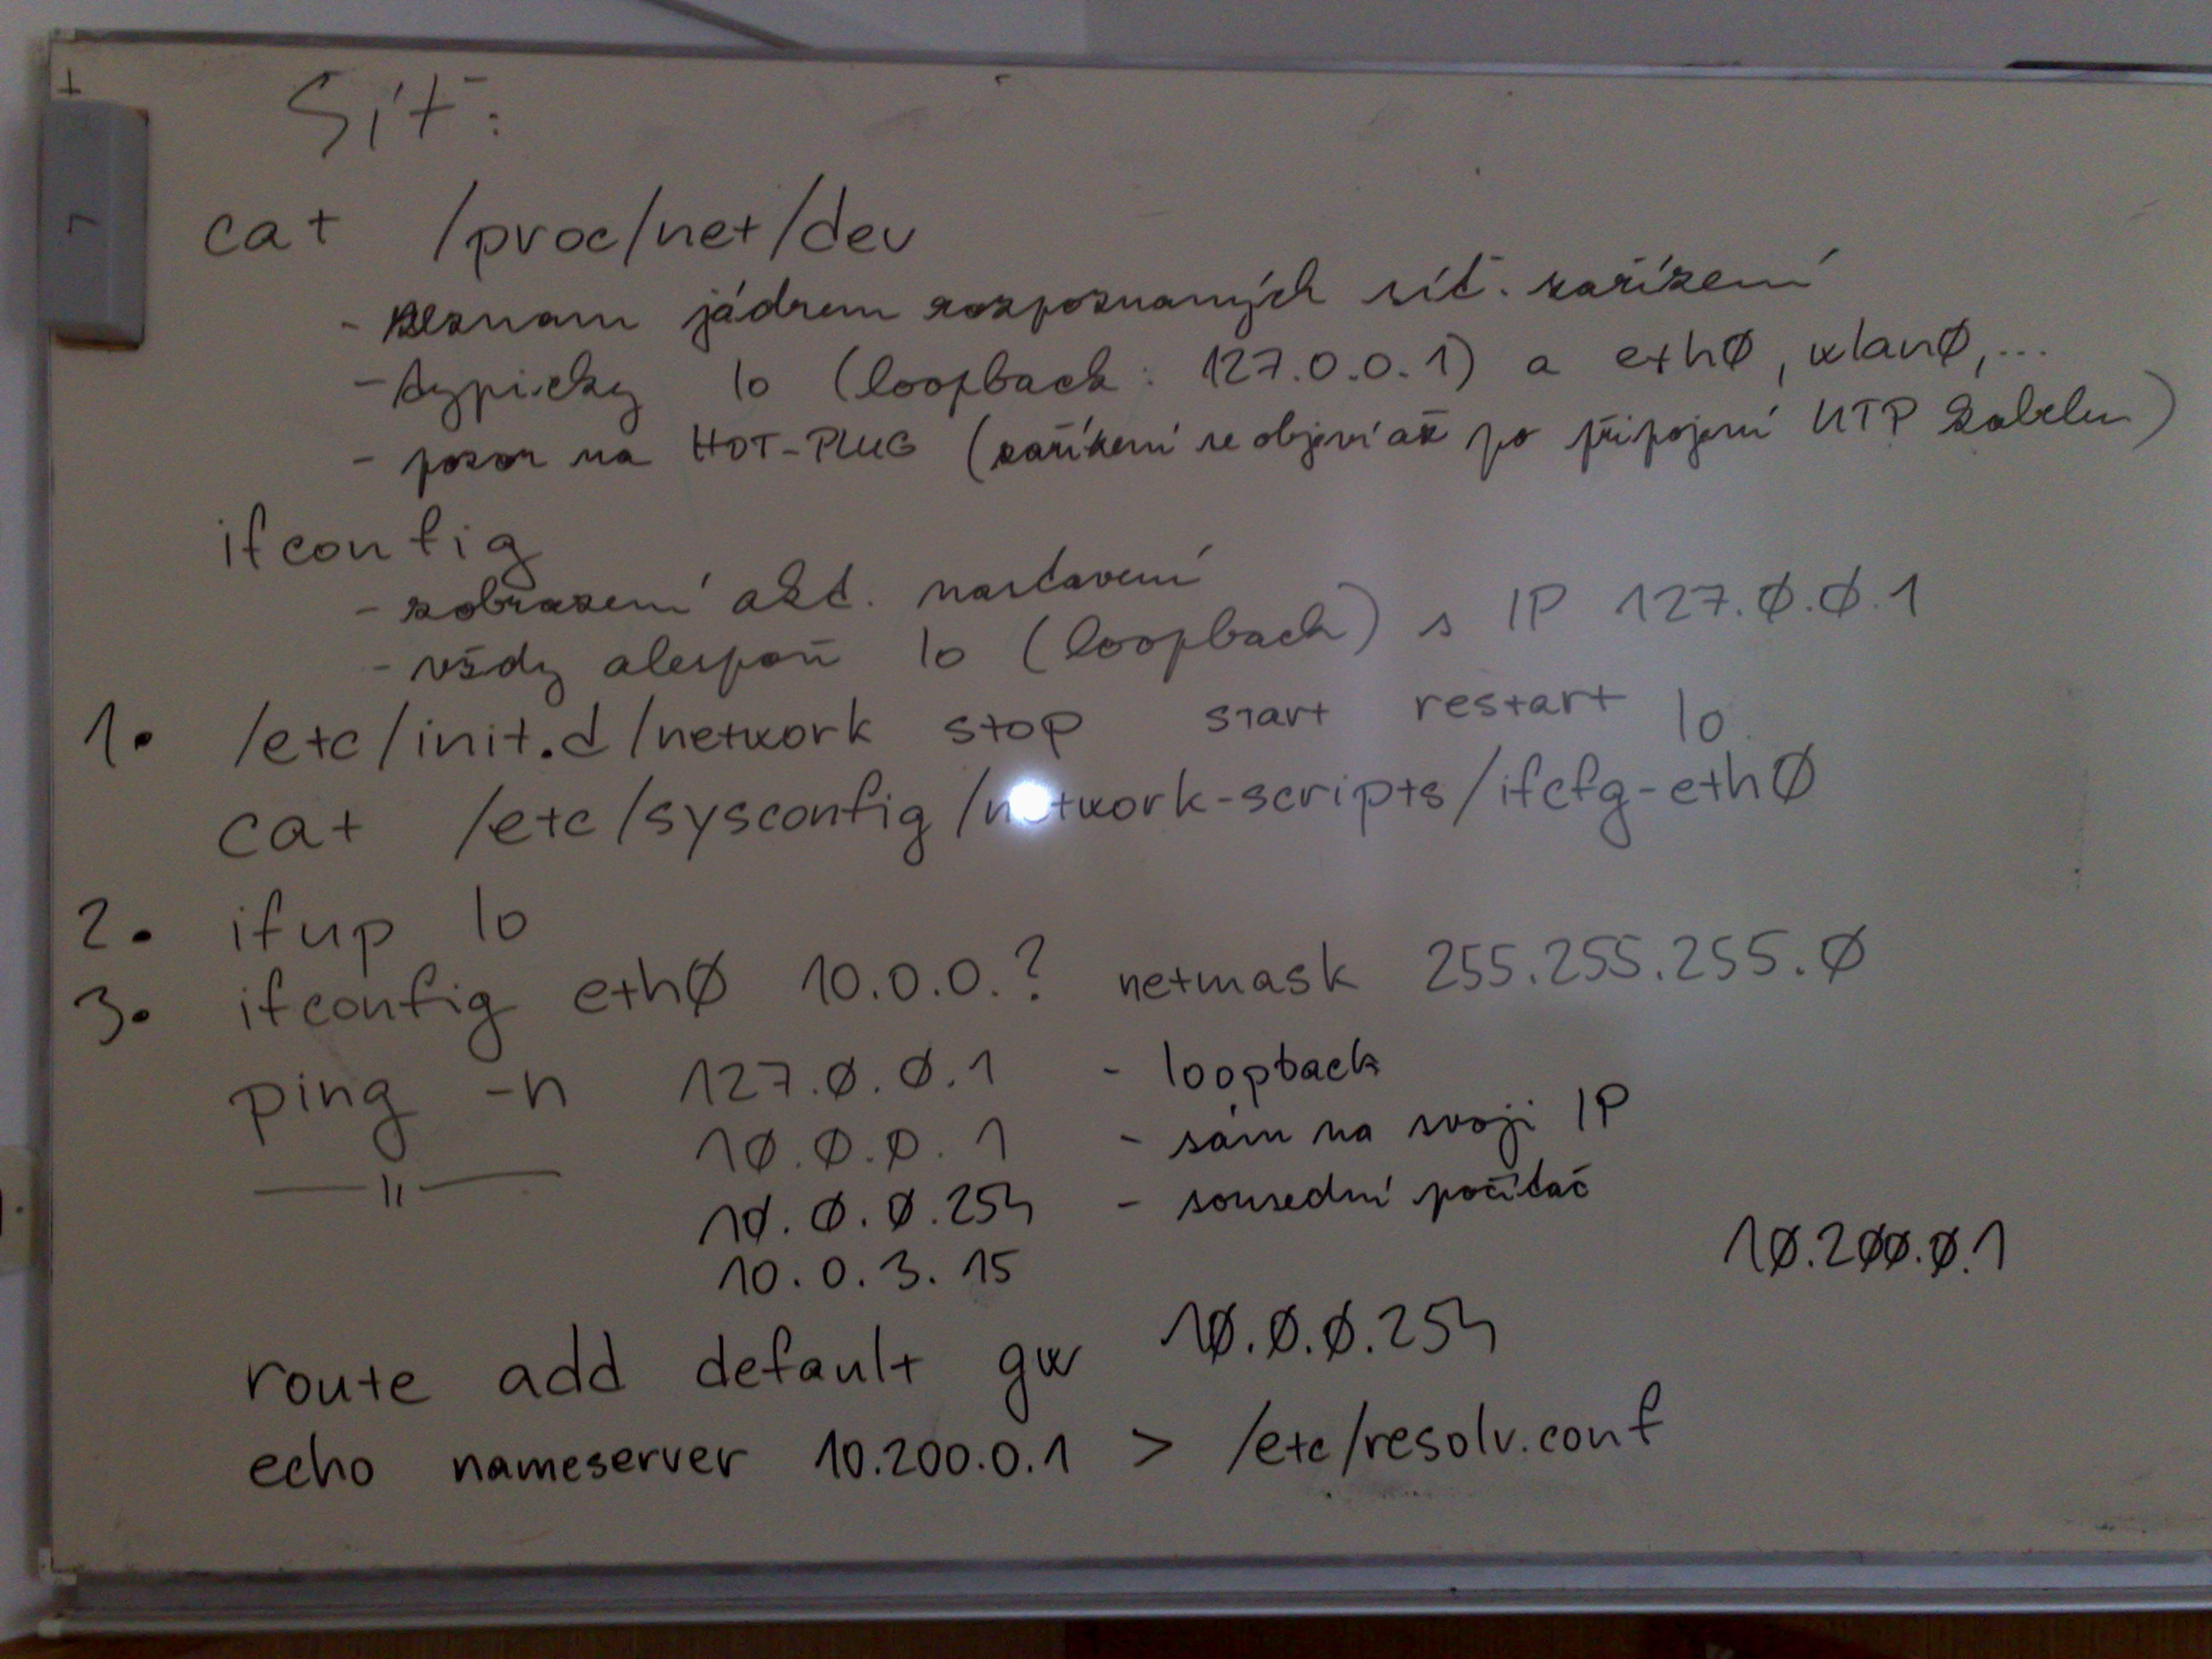 Síť:
cat /proc/net/dev
- seznam jádrem rozpoznaných síť. zařízení
- typicky lo (loopback: 127.0.0.1) a eth0, wlan0, ...
- pozor na HOT-PLUG (zařízení se objeví až po připojení UTP kabelu)
ifconfig
- zobrazení akt. nastavení
- vždy alespoň lo (loopback) s IP 127.0.0.1
1. /etc/init.d/network stop start restart lo
cat /etc/sysconfig/network-scripts/ifcfg-eth0
2. ifup lo
3. ifconfig eth0 10.0.0.? netmask 255.255.255.0
ping -n 127.0.0.1 - loopback
10.0.0.1 - sám na svoji IP
—〃— 10.0.0.254 - sousední počítač
10.0.3.15
10.200.0.1
route add default gw 10.0.0.254
echo nameserver 10.200.0.1 > /etc/resolv.conf